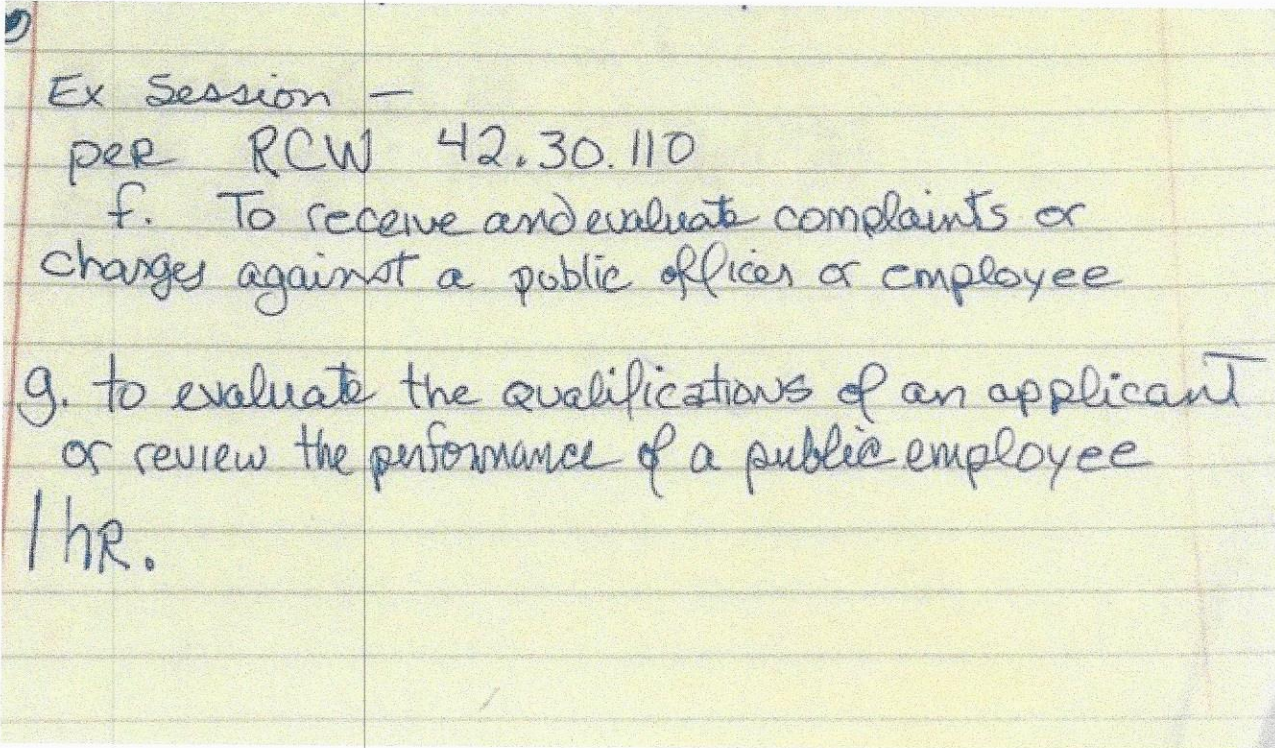 Ex Session –
per RCW 42.30.110
f. To receive and evaluate complaints or
charges against a public officer or employee
g. to evaluate the qualifications of an applicant
or review the performance of a public employee
1 hR.